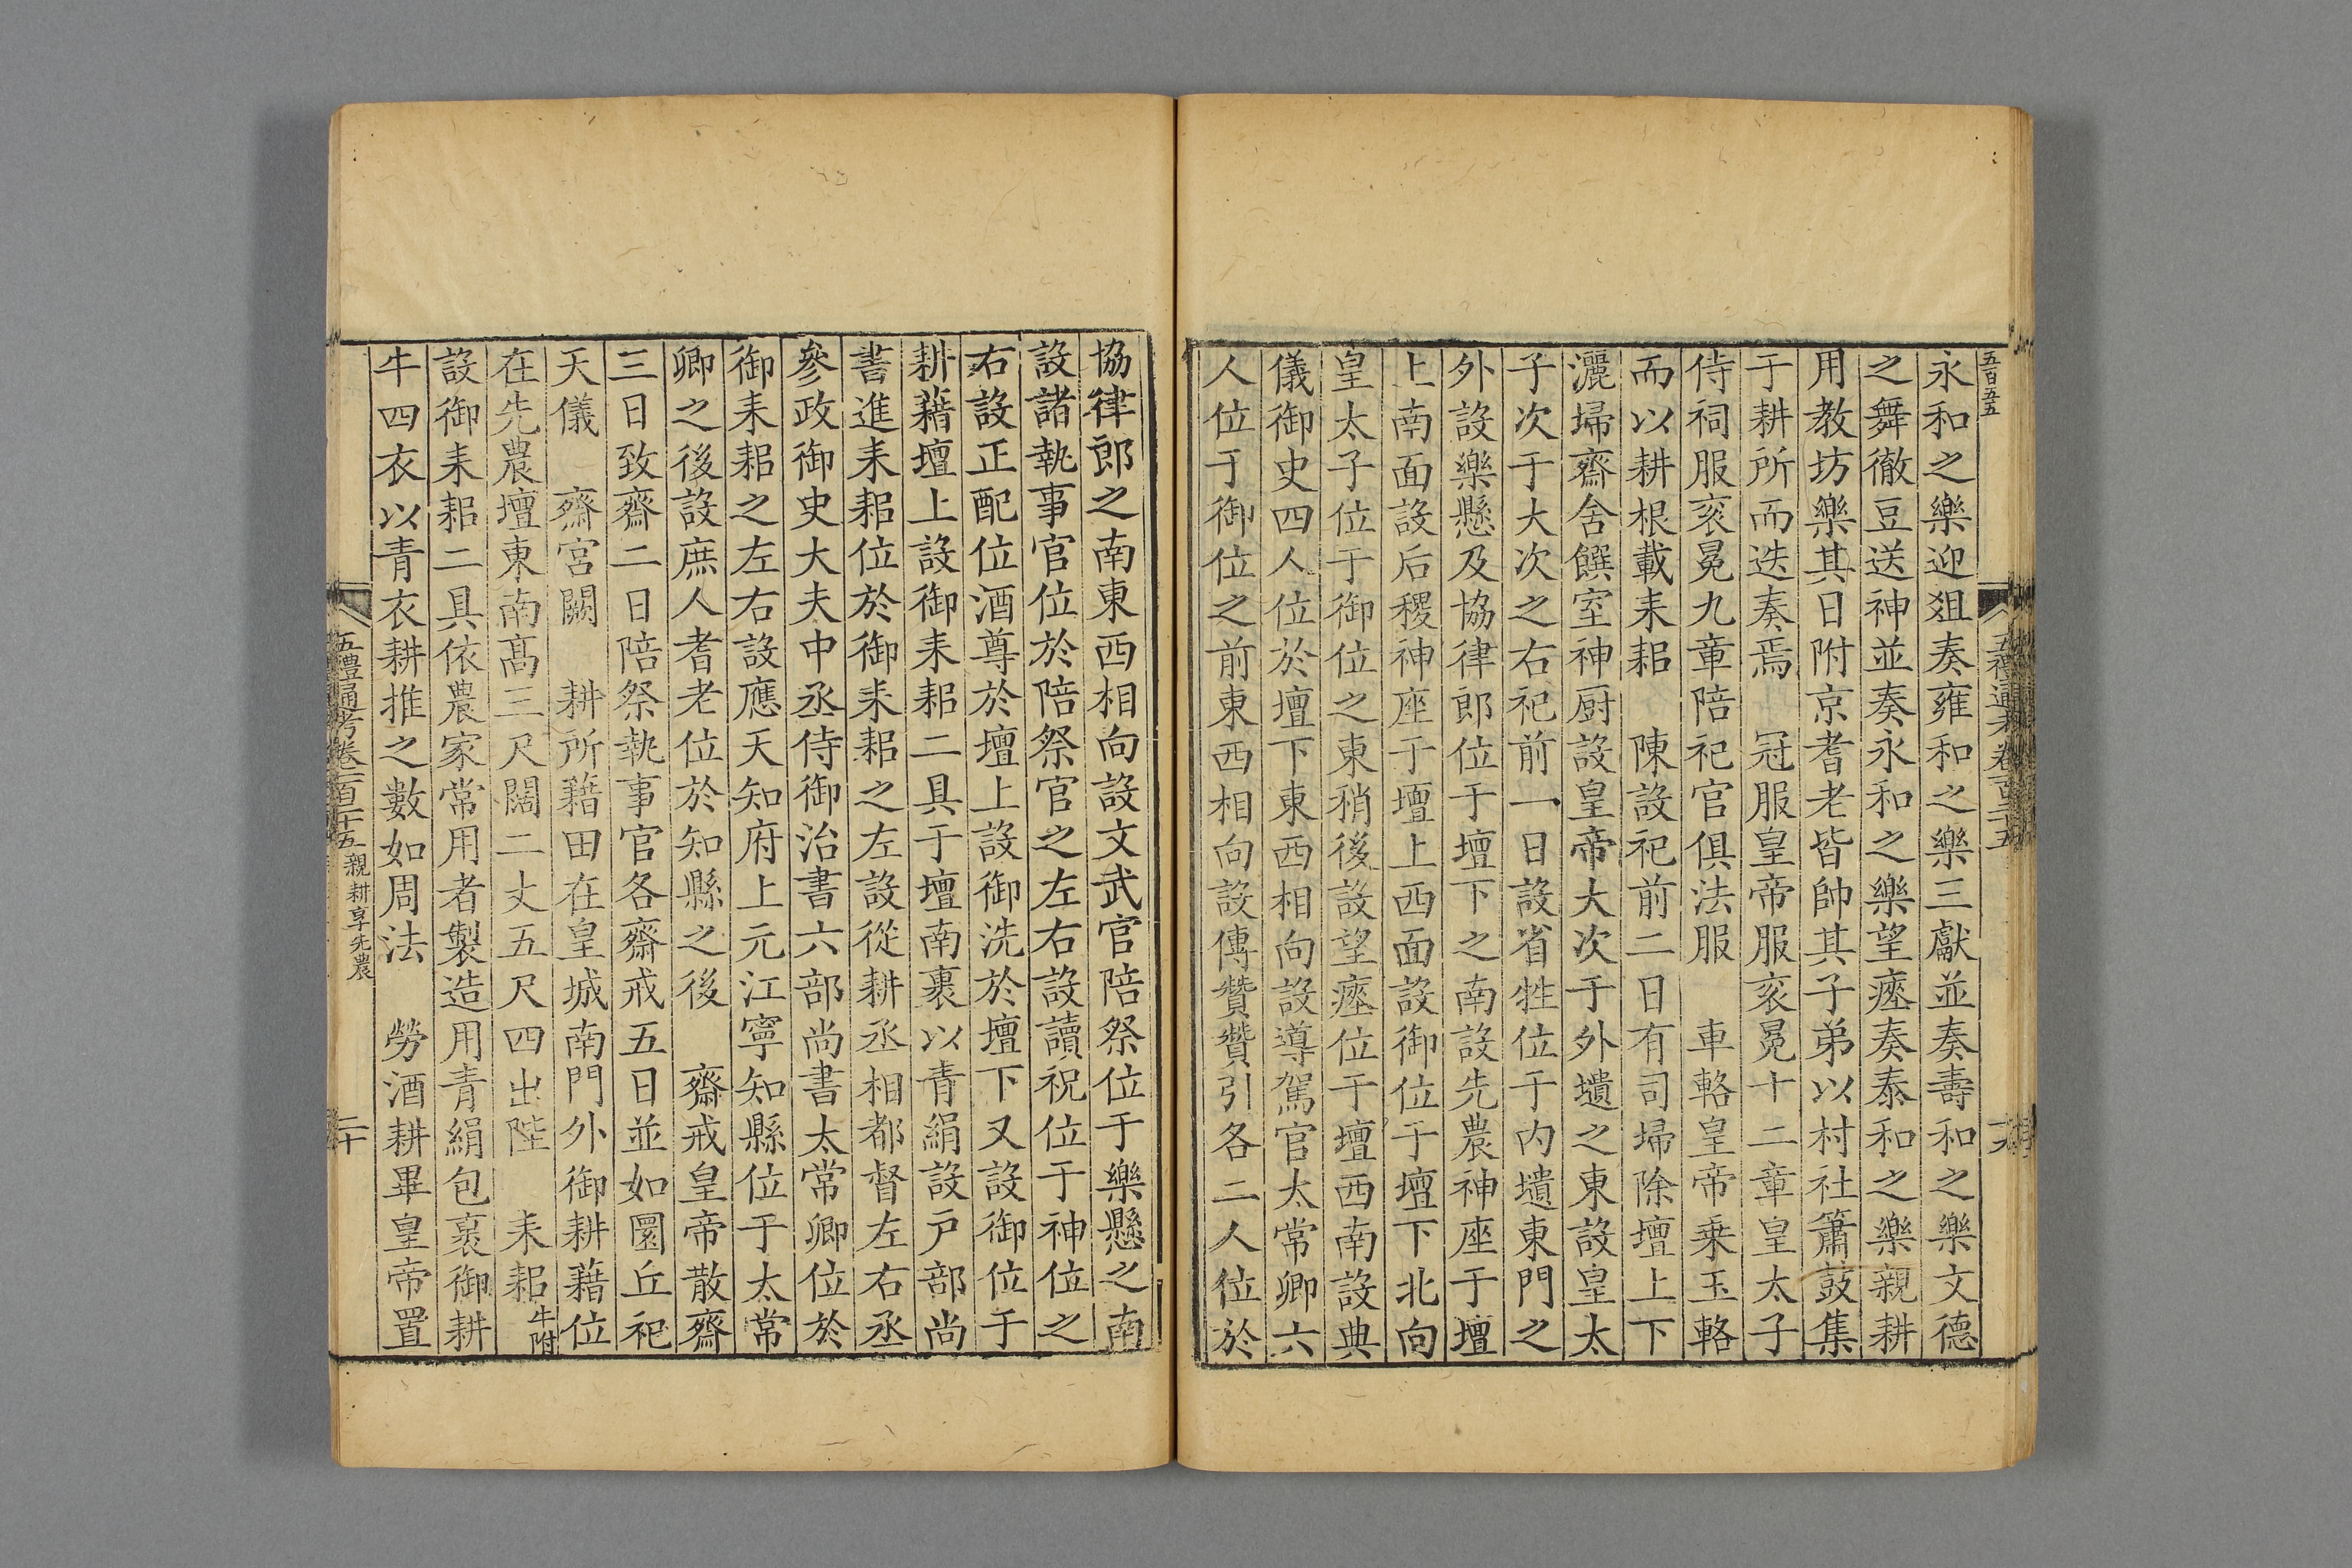 五百五五
永和之樂迎俎奏雍和之樂三獻並奏壽和之樂文德
之舞徹豆送神並奏永和之樂望瘞奏泰和之樂親耕
用教坊樂其日附京耆老皆帥其子弟以村社簫鼓集
于耕所而迭奏焉　冠服皇帝服衮冕十二章皇太子
侍祠服衮冕九章陪祀官俱法服　車輅皇帝乗玉輅
而以耕根載耒耜　陳設祀前二日有司埽除壇上下
灑埽齋舍饌室神厨設皇帝大次于外壝之東設皇太
子次于大次之右祀前一日設省牲位于内壝東門之
外設樂懸及協律郎位于壇下之南設先農神座于壇
上南面設后稷神座于壇上西面設御位于壇下北向
皇太子位于御位之東稍後設望瘞位于壇西南設典
儀御史四人位於壇下東西相向設導駕官太常卿六
人位于御位之前東西相向設傳贊贊引各二人位於
協律郎之南東西相向設文武官陪祭位于樂懸之南
設諸執事官位於陪祭官之左右設讀祝位于神位之
右設正配位酒尊於壇上設御洗於壇下又設御位于
耕藉壇上設御耒耜二具于壇南裹以青絹設戸部尚
書進耒耜位於御耒耜之左設從耕丞相都督左右丞
參政御史大夫中丞侍御治書六部尚書太常卿位於
御耒耜之左右設應天知府上元江寧知縣位于太常
卿之後設庶人耆老位於知縣之後　齋戒皇帝散齋
三日致齋二日陪祭執事官各齋戒五日並如圜丘祀
天儀　齋宮闕　耕所藉田在皇城南門外御耕藉位
在先農壇東南髙三尺闊二丈五尺四出陛　耒耜牛附
設御耒耜二具依農家常用者製造用青絹包裹御耕
牛四衣以青衣耕推之數如周法　勞酒耕畢皇帝置
五禮通考卷一百二十五 親耕享先農 二十